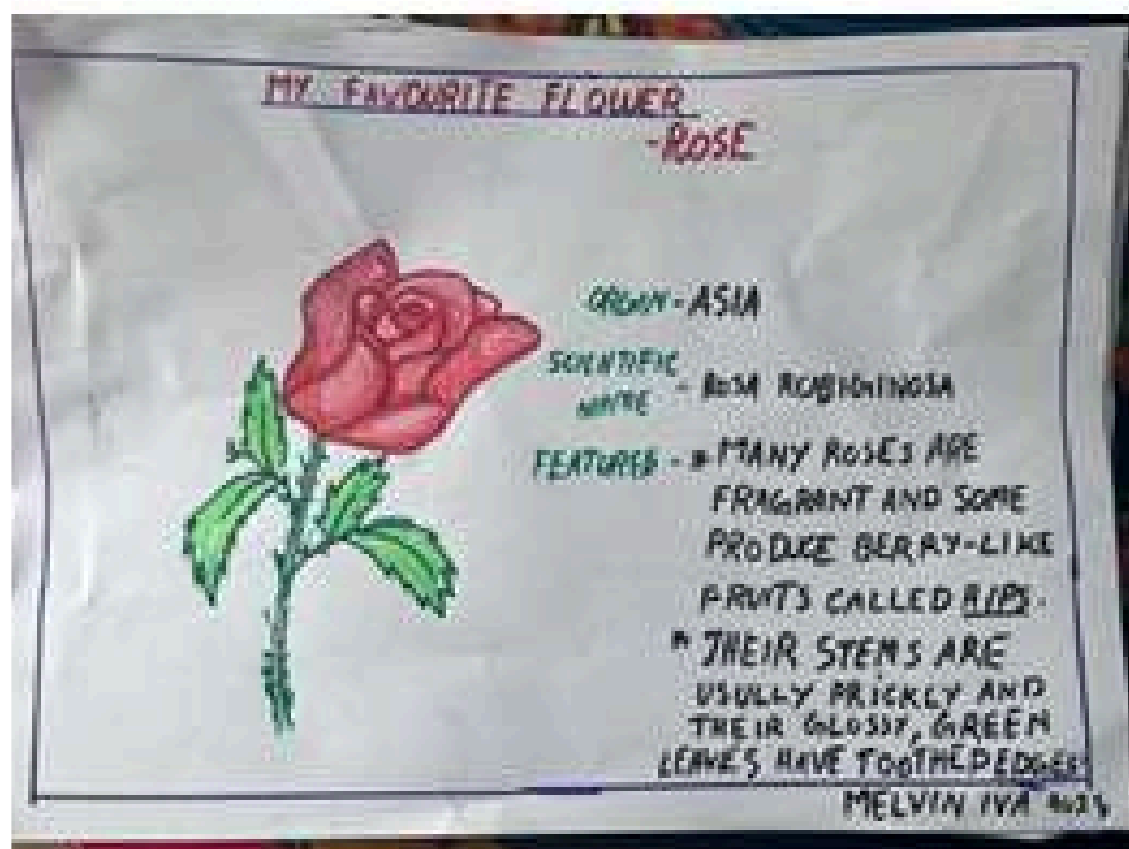 MY FAVOURITE FLOWER
-ROSE
ORIGIN - ASIA
SCIENTIFIC
NAME - ROSA RUBIGINOSA
FEATURES - * MANY ROSES ARE
FRAGRANT AND SOME
PRODUCE BERRY-LIKE
FRUITS CALLED HIPS.
* THEIR STEMS ARE
USULLY PRICKLY AND
THEIR GLOSSY, GREEN
LEAVES HAVE TOOTHED EDGES
MELVIN IVA